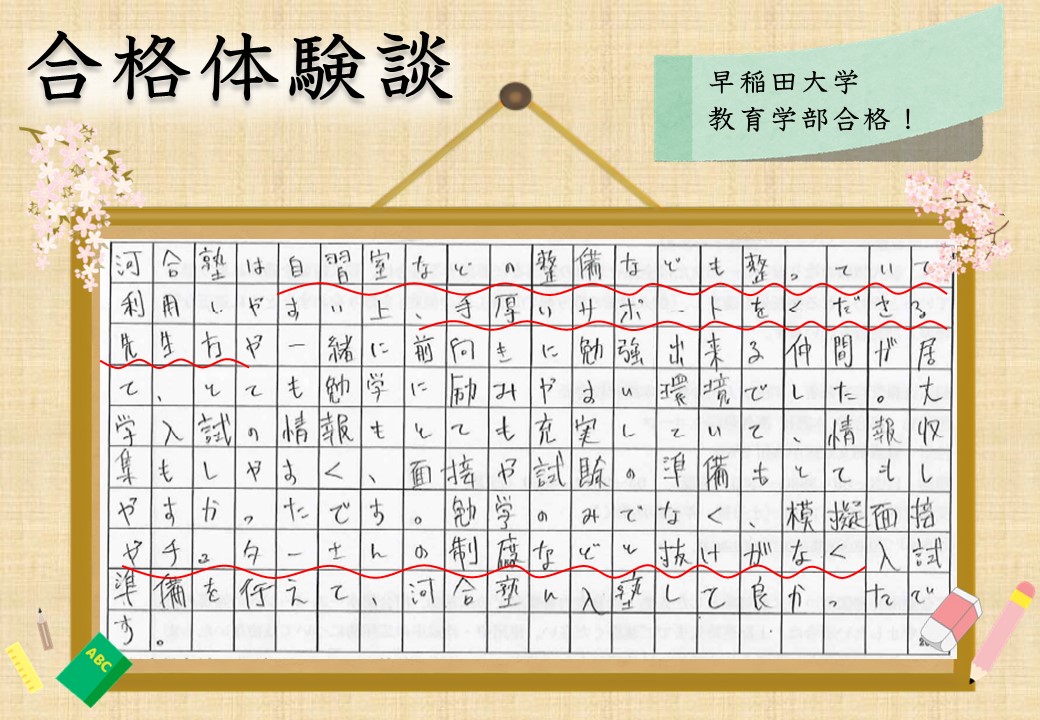 合格体験談
早稲田大学
教育学部合格！
河合塾は自習室などの整備なども整っていて
利用しやすい上、手厚いサポートをくださる
先生方や一緒に前向きに勉強出来る仲間が居
て、とても勉学に励みやすい環境でした。大
学入試の情報もとても充実していて、情報収
集もしやすく、面接や試験の準備もとてもし
やすかったです。勉学のみでなく、模擬面接
やチューターさんの制度などと抜けがなく入試
準備を行えて、河合塾に入塾して良かったで
す。
ABC